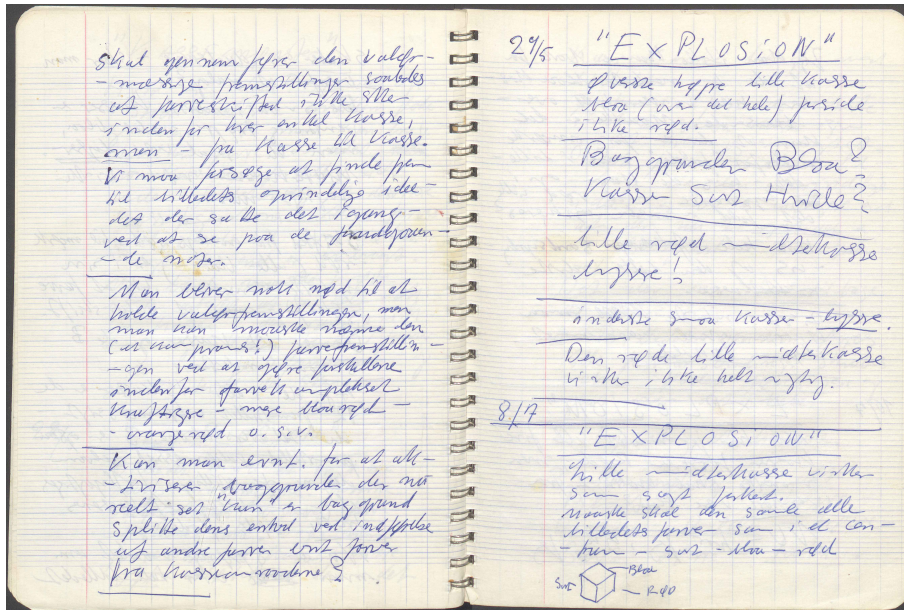 Skal gennem farver den valør-
-mæssige fremstillinger saaledes
at farveskiftet ikke sker
inden for hver enkel Kasse,
men - fra Kasse til Kasse.
Vi maa forsøge at finde frem
til billedets oprindelige idee-
det der satte det igang -
ved at se paa de
-de noter.
Man bliver nok nød til at
holde valørfremstillingen, men
man kan maaske nærme den
(et kompromis!) farvefremstillin-
-gen ved at gøre forskellene
inden for farvekomplekset
Kraftigere - mere blaarød -
- orangerød o.s.v.
Kan man evnt. for at akt-
-iviserer baggrunden der nu
reelt set "kun" er baggrund
splitte dens enhed ved indførelse
af andre farver evnt farver
fra Kasseomraaderne?
29/5 "EXPLOSION"
Øverste højre lille Kasse
blaa (over det hele) forside
ikke rød.
Baggrunden Blaa?
Kassen Sort Hvide?
lille rød midterkasse
lysere!
inderste smaa Kasser - lysere.
Den røde lille midterkasse
virker ikke helt rigtig.
8/7
"EXPLOSION"
Lille midterkasse virker
som sagt forkert.
Maaske skal den samle alle
billedets farver som i et cen-
-trum - sort - blaa - rød
Blaa
Sort
RØD